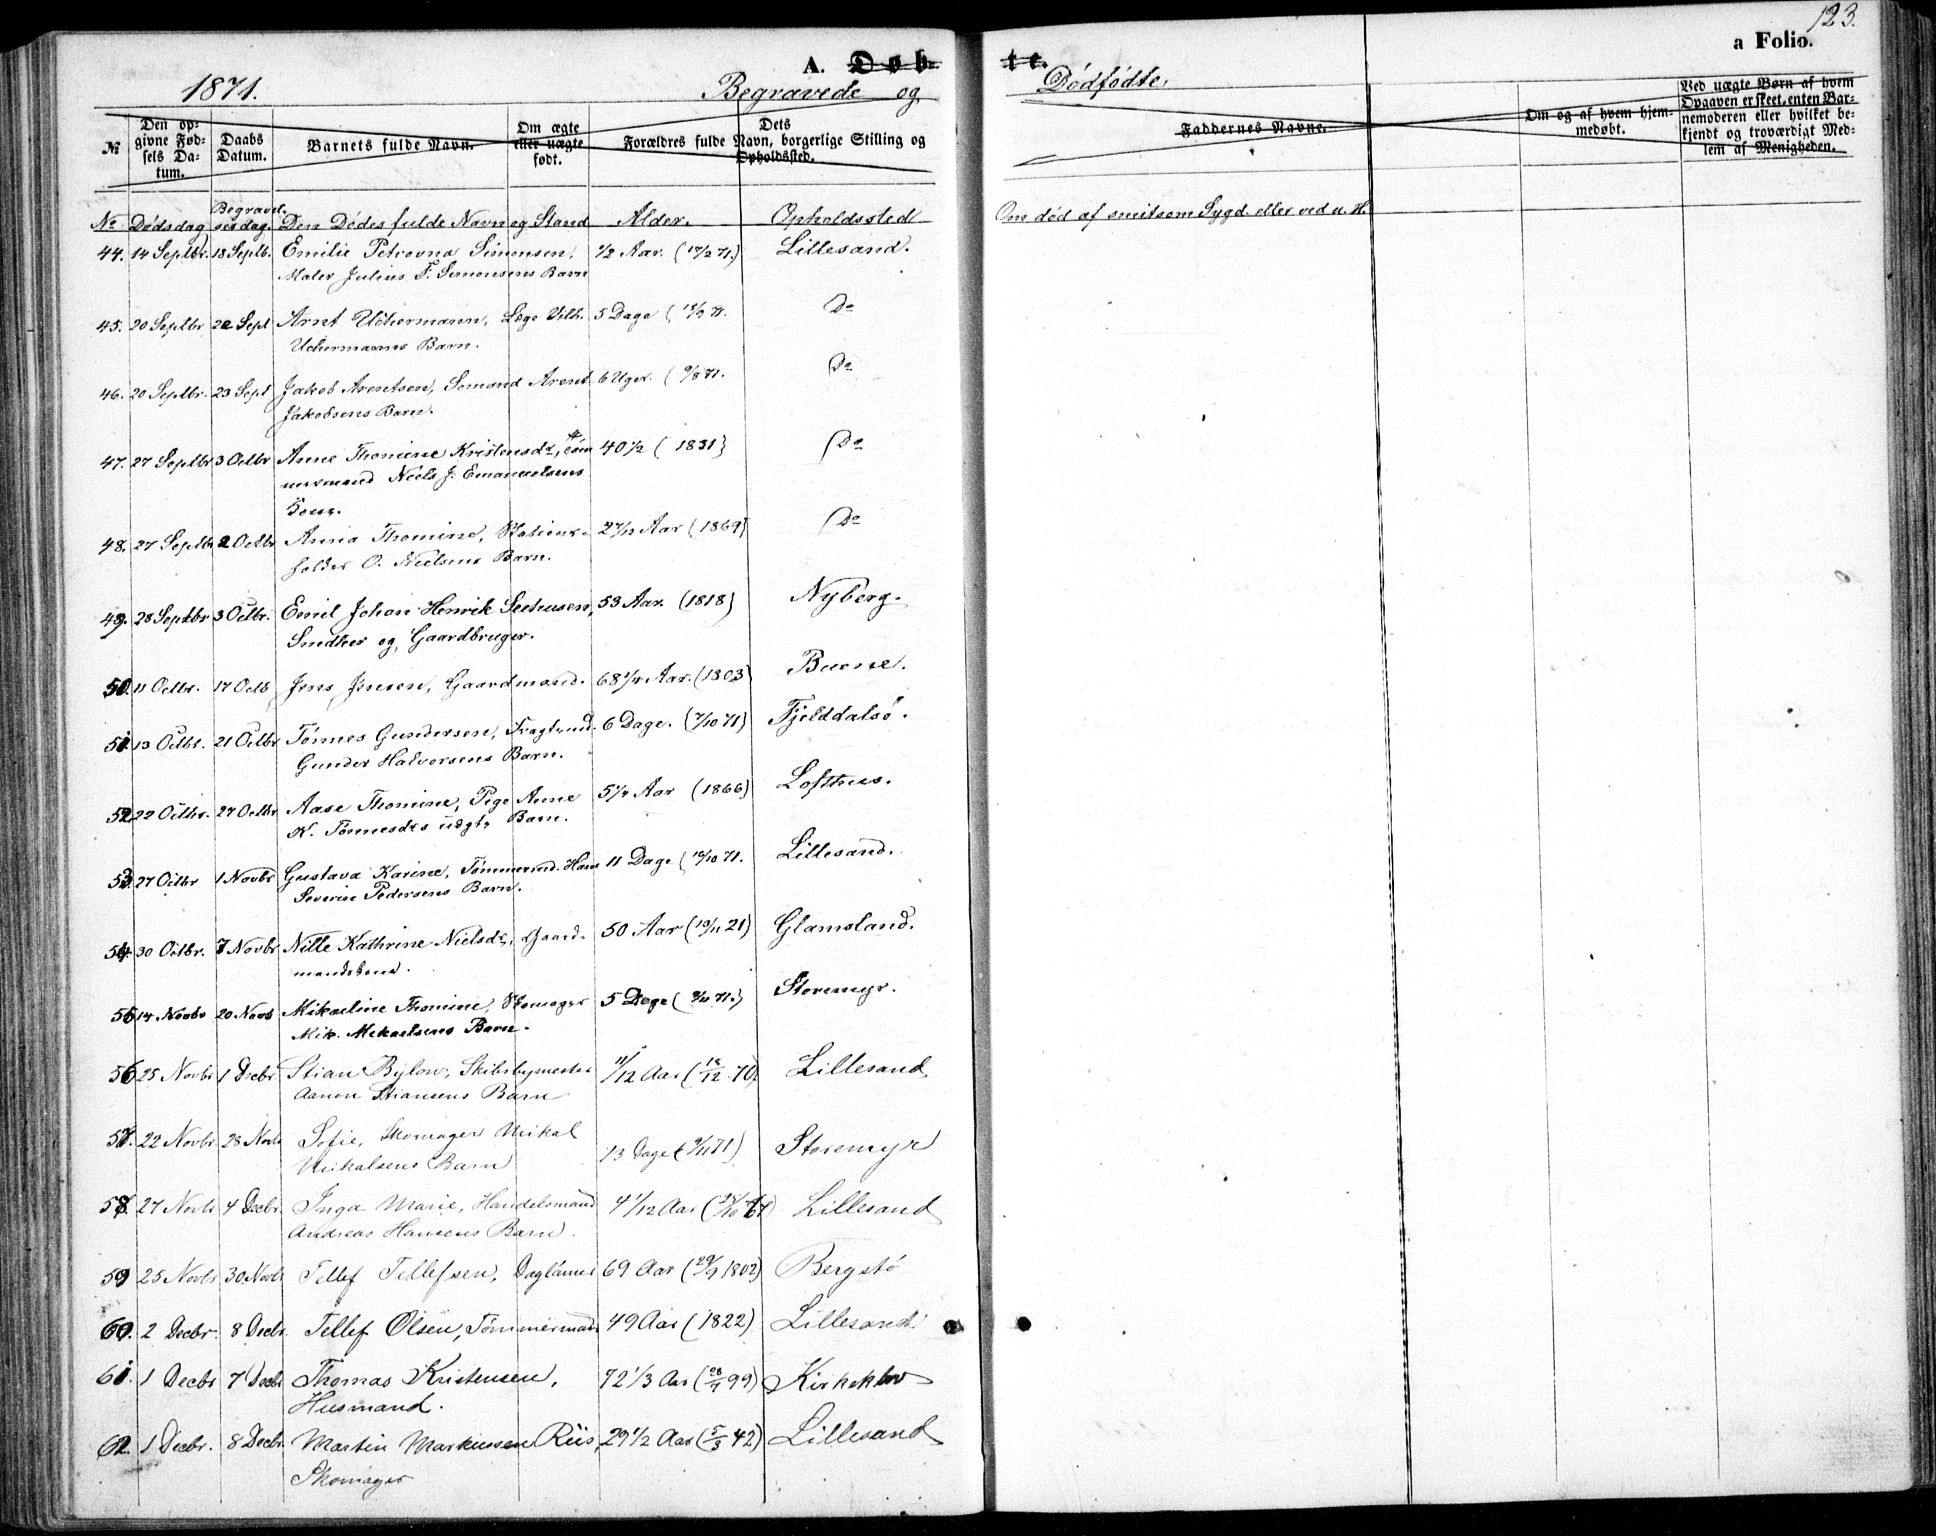 123.
a Folio.
A. Døbte.
1871. Begravede og Dødfødte.
№
Den opgivne Fødsels Datum.
Daabs Datum.
Barnets fulde Navn.
Om ægte eller uægte født.
Dets Forældres fulde Navn, borgerlige Stilling og Opholdssted.
Faddernes Navne.
Om og af hvem hjemmedøbt.
Ved uægte Børn af hvem Opgaven er skeet, enten Barnemoderen eller hvilket bekjendt og troværdigt Medlem af Menigheden.
No Dødsdag Begravelsesdag. Den Dødes fulde Navn og Stand Alder. Opholdssted Om død af smitsom Sygd. eller ved u. H.
44. 14 Septbr. 18 Septb. Emilie Petrovna Simonsen, 1/2 Aar. (17/2 71.) Lillesand.
Maler Julius F. Simonsens Barn
45. 20 Septbr 22 Sept Arnt Uchermann, Læge Vilh. 5 Dage (15/9 71. Do
Uchermanns Barn.
46. 20 Septbr. 23 Sept Jakob Arentsen, Sømand Arent 6 Uger. (9/8 71. Do
Jakobsens Barn.
47. 27 Septbr 3 Octbr Anne Thomine Kristensdr, Tøm 40 1/2 (1831) Do
mermand Niels J. Emanuelsens
Kone.
48. 27 Septbr 2 Octbr Anna Thomine, Stations- 2 7/12 Aar (1869) Do
holder O. Nielsens Barn.
49. 28 Septbr 3 Octbr. Emil Johan Henrik Seehusen, 53 Aar. (1818) Nyberg.
Snedker og Gaardbruger.
50. 11 Octbr. 17 Octb Jens Jensen, Gaardmand. 68 1/4 Aar. (1803)
51. 13 Octbr. 21 Octbr Tønnes Gundersen, Fragtmd. 6 Dage. (7/10 71) Fjelddalsø.
Gunder Halvorsens Barn.
52. 22 Octbr. 27 Octbr Aase Thomine, Pige Anne 5 1/4 Aar (1866) Lofthus.
K. Tønnesdrs uægte Barn.
53. 27 Octbr 1 Novbr Gustava Karine, Tømmermd. Hans 11 Dage (16/10 71. Lillesand.
Severin Pedersens Barn.
54. 30 Octbr. 7 Novbr Nille Kathrine Nielsdr, Gaard- 50 Aar (19/11 21) Glamsland.
mandskone.
55 14 Novbr 20 Novb Mikaeline Thomine, Skomager 5 Dage (9/11 71.) Storemyr.
Mik. Mikaelsens Barn.
56 25 Novbr 1 Decbr Stian Bylow, Skibsbymester 11/12 Aar (18/12 70) Lillesand
Aanon Stiansens Barn
57. 22 Novbr 28 Novb Sofie, Skomager Mikal 13 Dage (9/11 71) Storemyr
Mikalsens Barn
58. 27 Novbr 4 Decbr. Inga Marie, Handelsmand 4 1/12 Aar Lillesand
Andreas Hansens Barn.
59 25 Novbr 30 Novb Tellef Tellefsen, Daglønner 69 Aar (29/9 1802) Bergstø
60. 2 Decbr. 8 Decbr. Tellef Olsen, Tømmermand 49 Aar (1822) Lillesand
61. 1 Decbr 7 Decbr Thomas Kristensen, 72 1/3 Aar (28/7 99)
Husmand.
62. 1 Decbr. 8 Decbr. Martin Markussen Riis, 29 1/2 Aar (5/3 42) Lillesand
Skomager